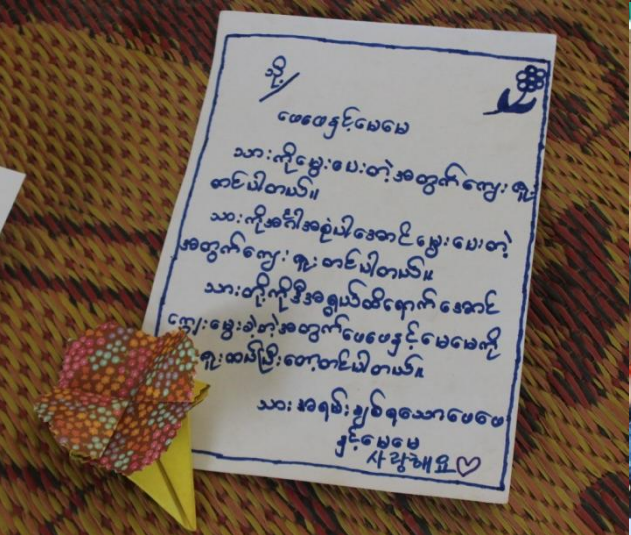 သို့/
ဖေဖေနှင့်မေမေ
သားကိုမွေးပေးတဲ့အတွက်ကျေးဇူး
တင်ပါတယ်။
သားကိုအင်္ဂါအစုံပါအောင်မွေးပေးတဲ့
အတွက်ကျေးဇူးတင်ပါတယ်။
သားတို့ကိုဒီအရွယ်ထိရောက်အောင်
ကျွေးမွေးခဲ့တဲ့အတွက်ဖေဖေနှင့်မေမေကို
ဇူးထယ်ပြီးတော့တင်ပါတယ်။
သားအရမ်းချစ်ရသောဖေဖေ
နှင့်မေမေ
사랑해요